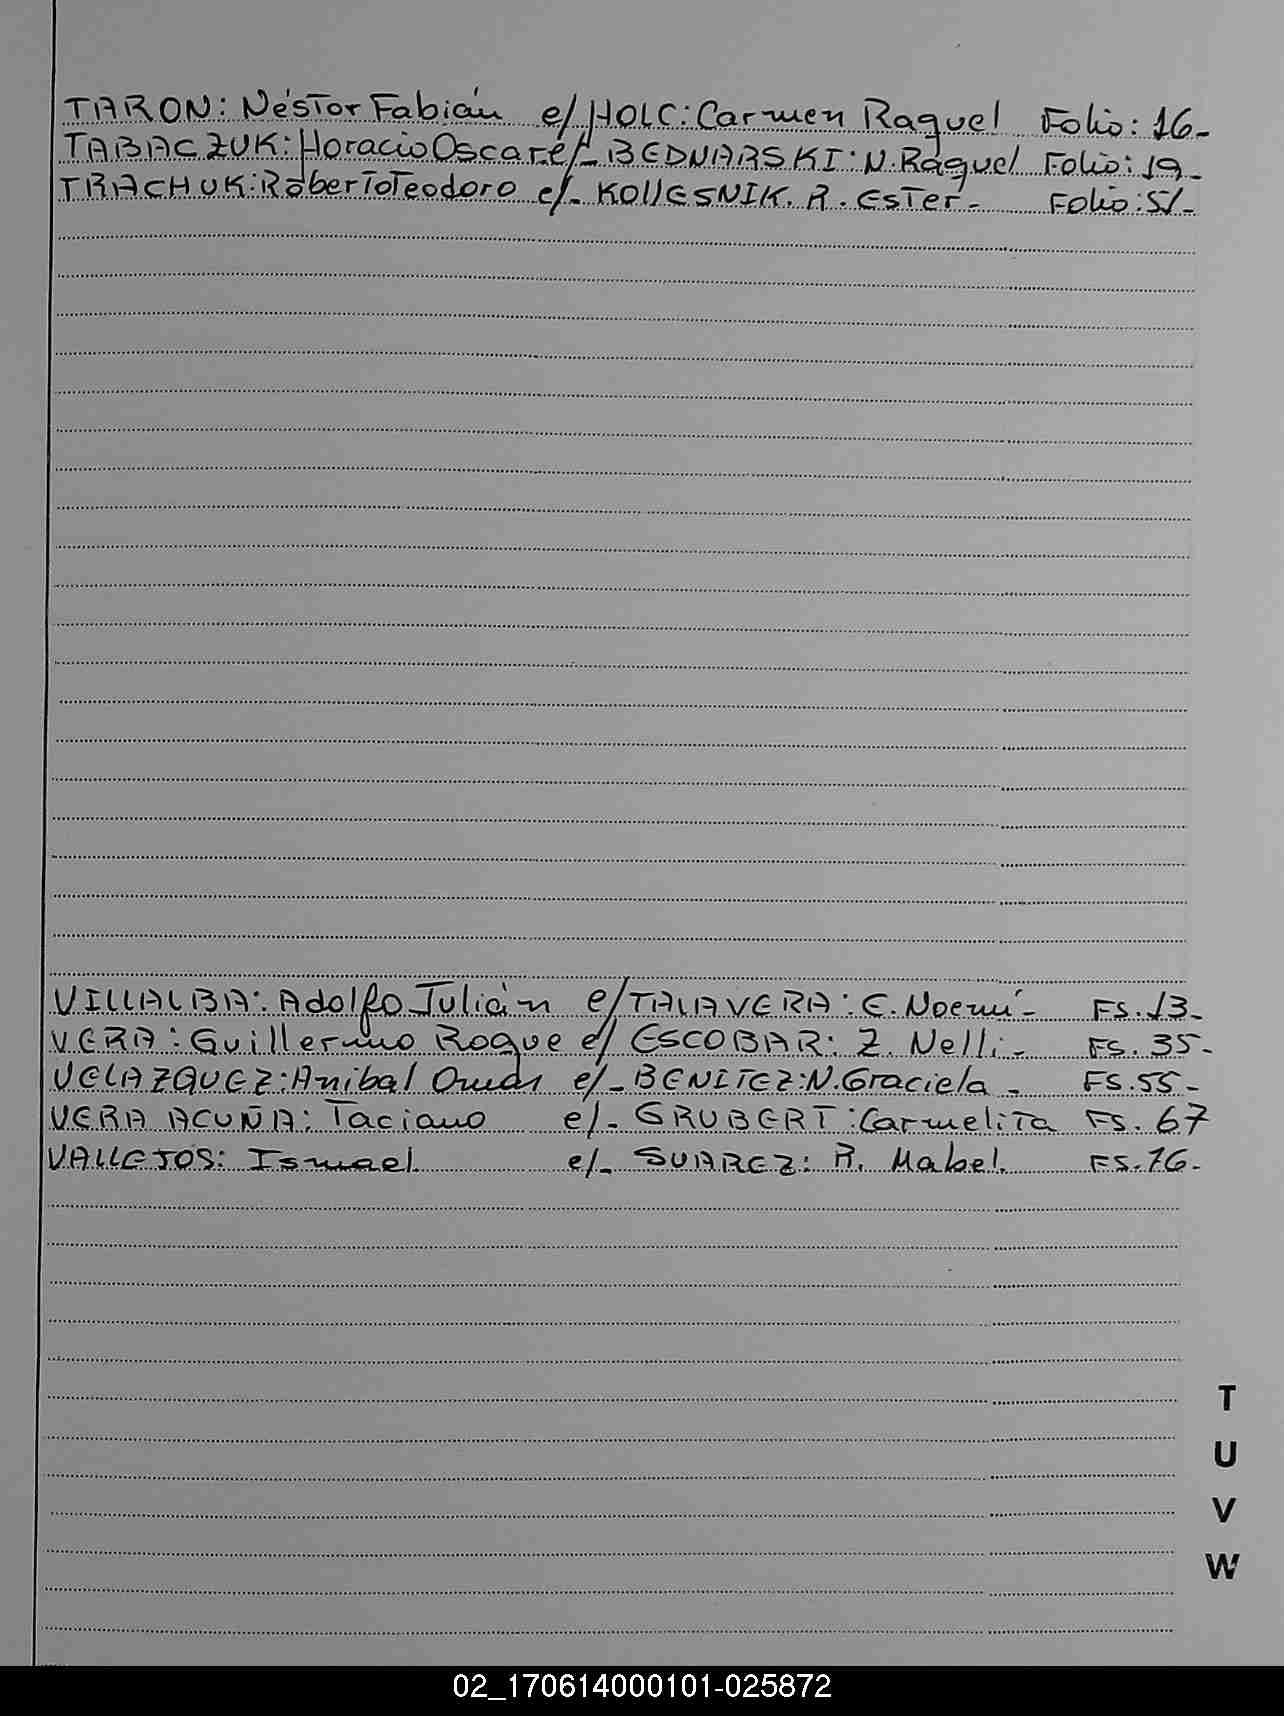 TARON: Néstor Fabián e/ HOLC: Carmen Raquel Folio: 16-
TABACZUK: Horacio Oscar e/- BEDNARSKI: N. Raquel Folio: 19-
TRACHUK: Roberto Teodoro e/- KOLLESNIK. R. Ester- Folio: 51-
VILLALBA: Adolfo Julián e/ TALAVERA: E. Noemí- FS. 13-
VERA: Guillermo Roque e/ ESCOBAR: Z. Nelli- FS. 35-
VELAZQUEZ: Anibal Omar e/- BENITEZ: N. Graciela- FS. 55-
VERA ACUÑA: Taciano e/- GRUBERT: Carmelita FS. 67
VALLEJOS: Ismael. e/- SUAREZ: R. Mabel. FS. 76-
T
U
V
W
02_170614000101-025872